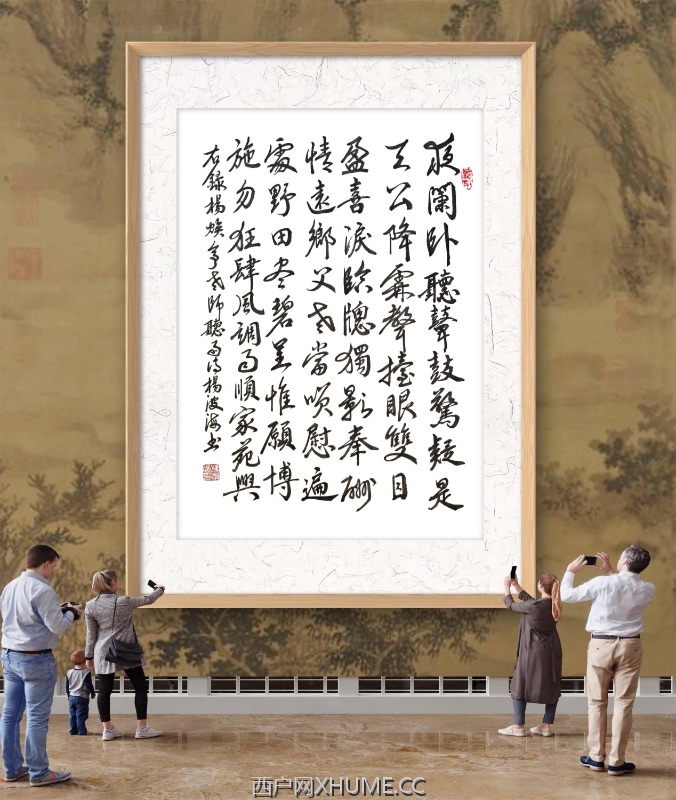 夜闌卧聽鼙鼓驚疑是
天公降霖聲擡眼雙目
盈喜淚臨牕獨影奉酬
情遠鄉父老當咲慰遍
處野田尽碧呈惟願博
施勿狂肆風調雨順家苑興
右錄楊煥亭老師聽雨詩楊波海书
西户网XHUME.CC